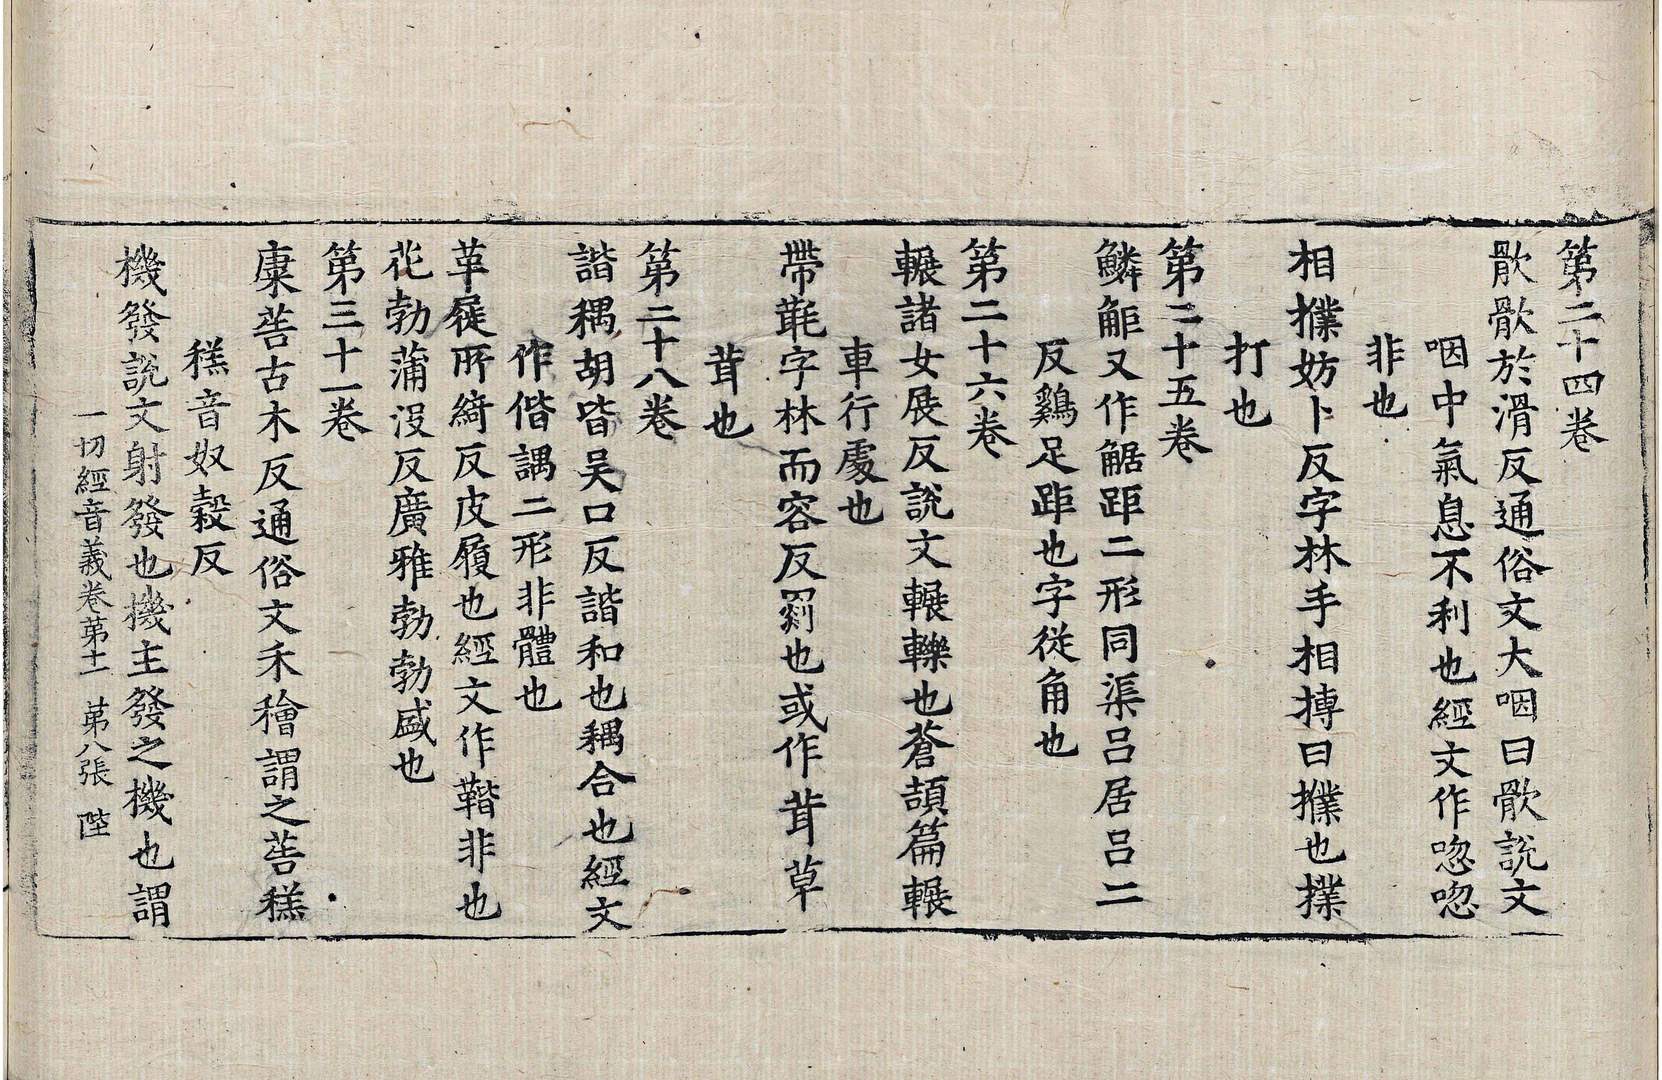 第二十四卷
歇歇於滑反通俗文大咽曰歇說文
咽中氣息不利也經文作唿唿
非也
相撲妨卜反字林手相搏曰撲也撲
打也
第二十五卷
鱗觝又作䱟距二形同渠呂居呂二
反鷄足距也字從角也
第二十六卷
輾諸女展反說文輾轢也蒼頡篇輾
車行處也
帶毦字林而容反罽也或作茸草
茸也
第二十八卷
諧耦胡皆吴口反諧和也耦合也經文
作偕謁二形非體也
革屣所綺反皮履也經文作鞜非也
花勃蒲沒反廣雅勃勃盛也
第三十一卷
稾䓘古木反通俗文禾穭謂之䓘糕
糕音奴穀反
機發說文射發也機主發之機也謂
一切經音義卷苐十一 苐八張 陛